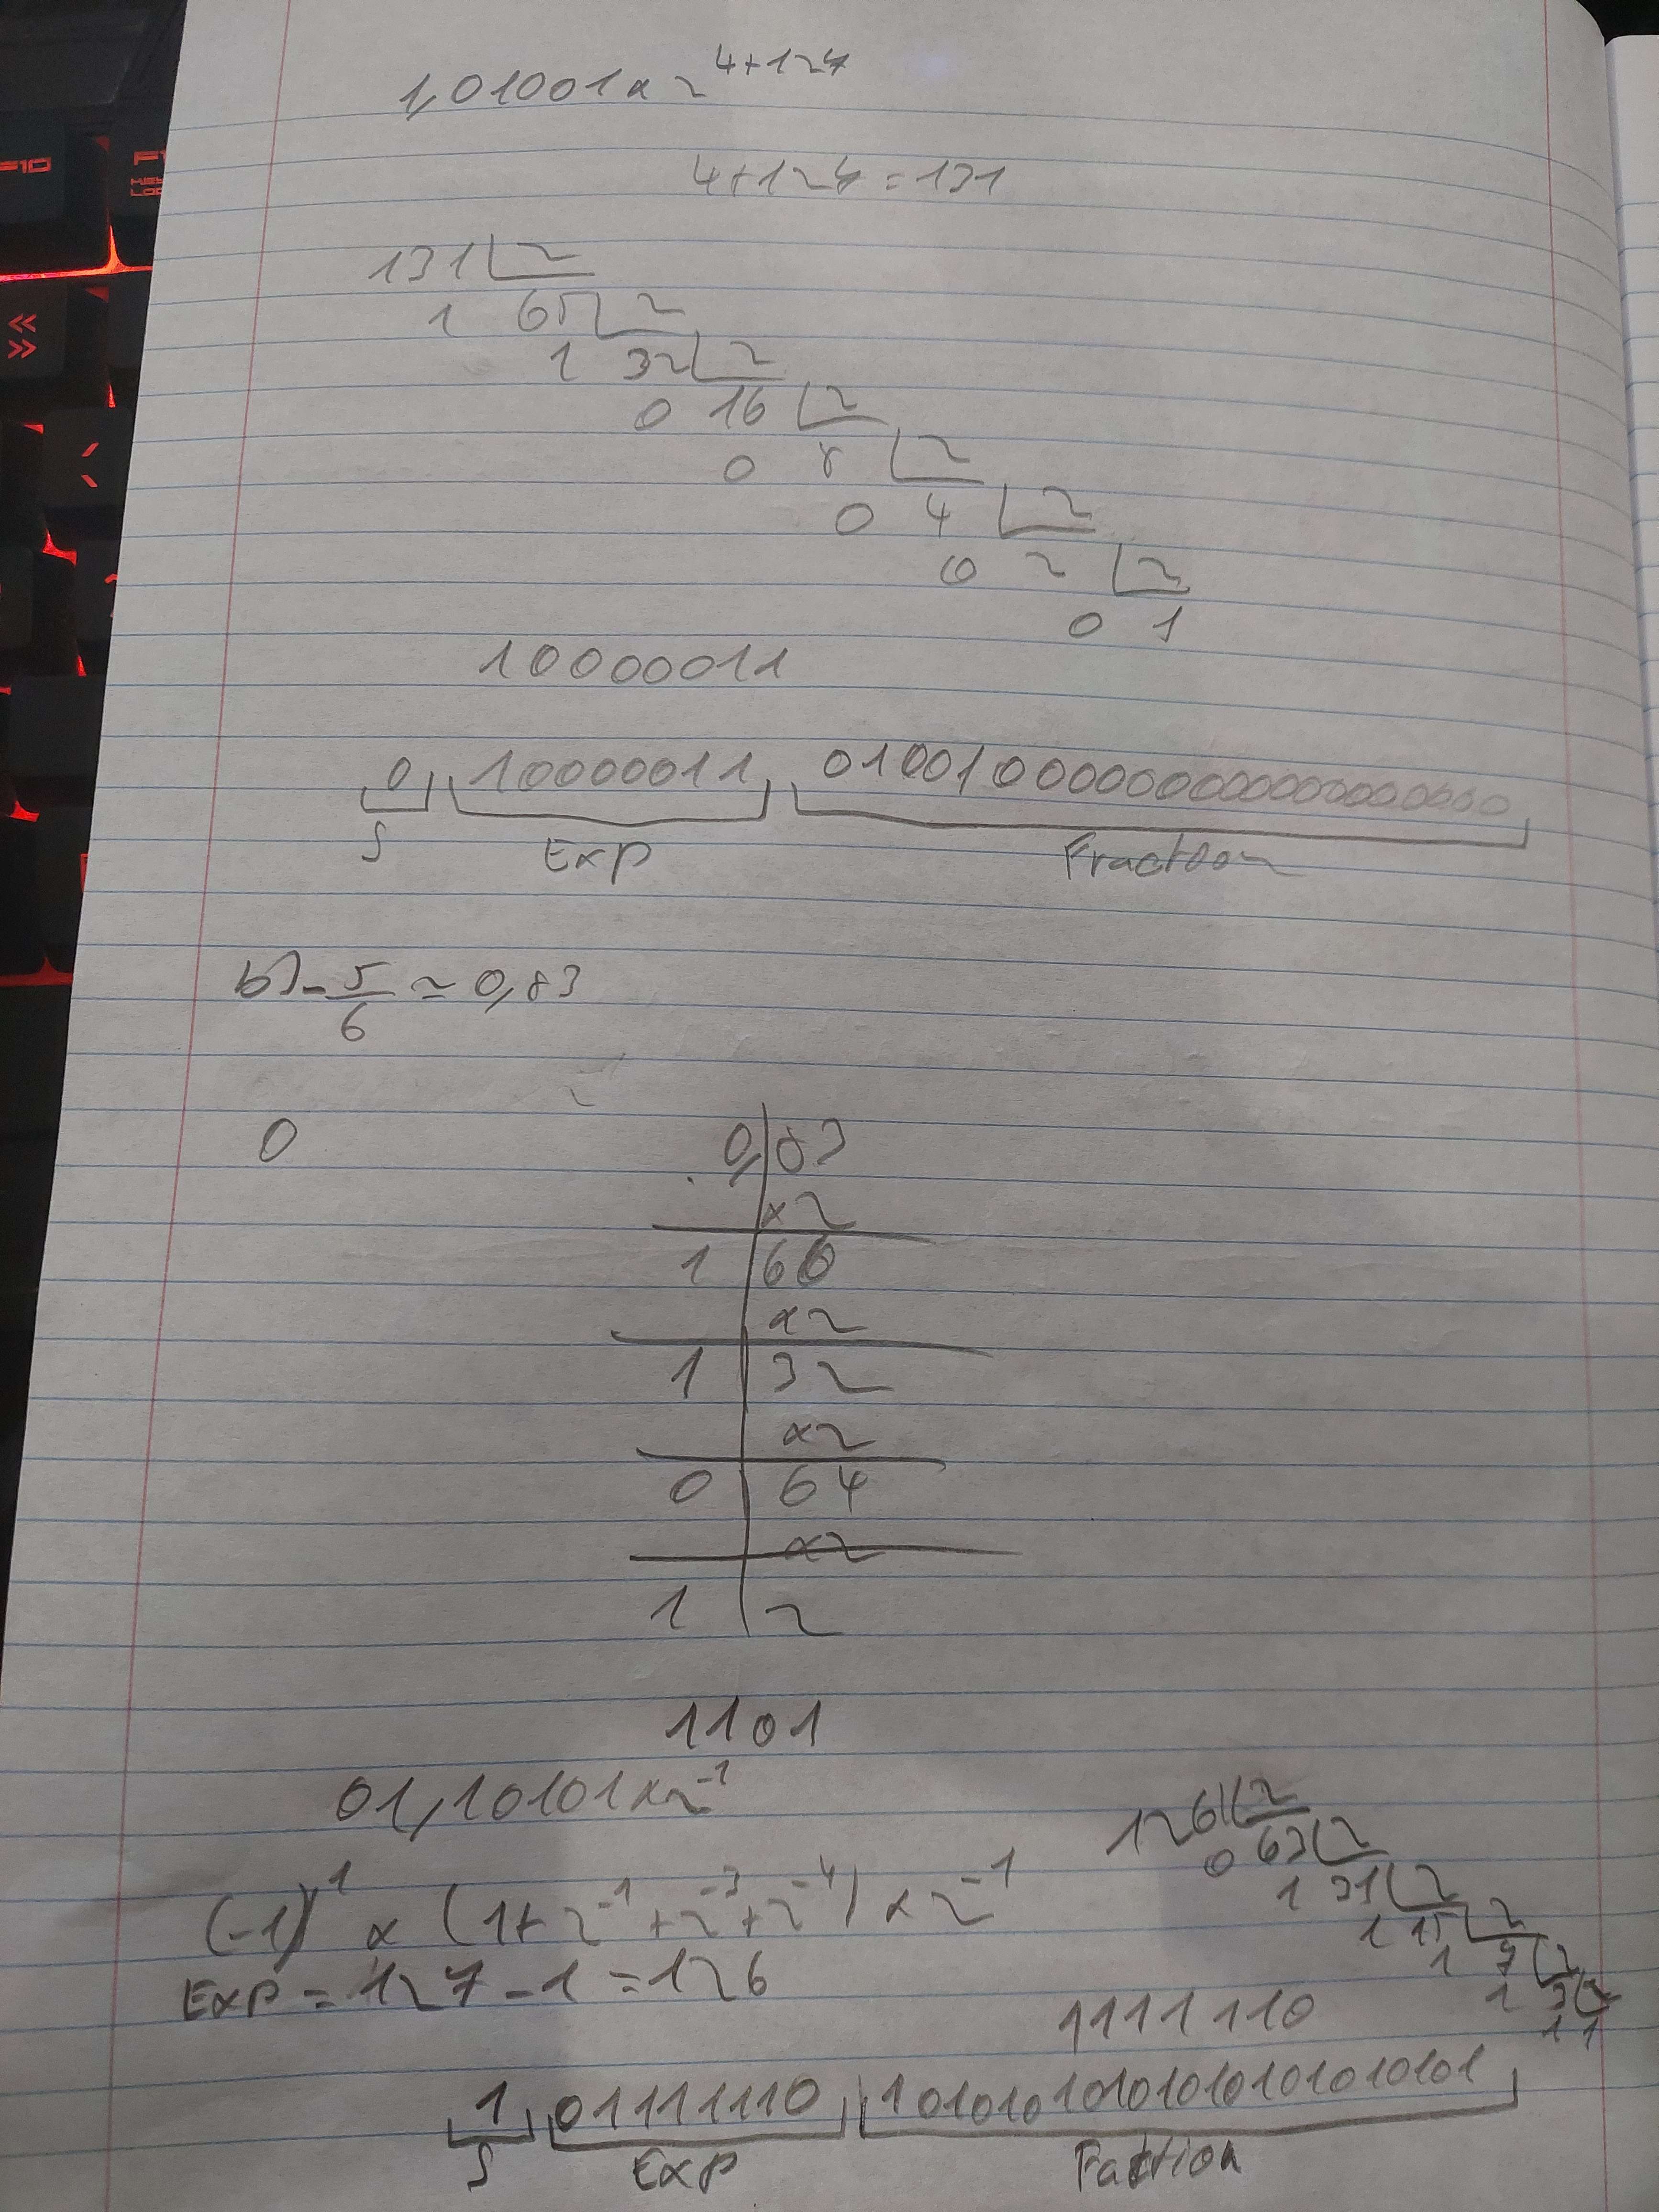 F10
1,01001x2^4+127
4+127=131
131 2
1 65 2
1 32 2
0 16 2
0 8 2
0 4 2
0 2 2
0 1
10000011
0 10000011 01001000000000000000000
S Exp Fraction
b) - 5/6 ≃ 0,83
0
0,83
x2
1 66
x2
1 32
x2
0 64
x2
1 2
1101
01,10101x2^-1
126 2
0 63 2
1 31 2
1 15 2
1 7 2
1 3 2
1 1
(-1)^1 x (1+2^-1+2^-3+2^-4) x2^-1
Exp = 127-1=126
1111110
1 01111110 10101010101010101010101
S Exp Faction